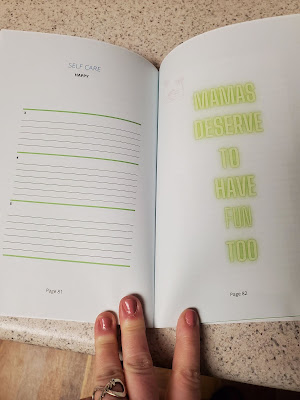 SELF CARE
HAPPY
Page 81
MAMAS
DESERVE
TO
HAVE
FUN
TOO
Page 82